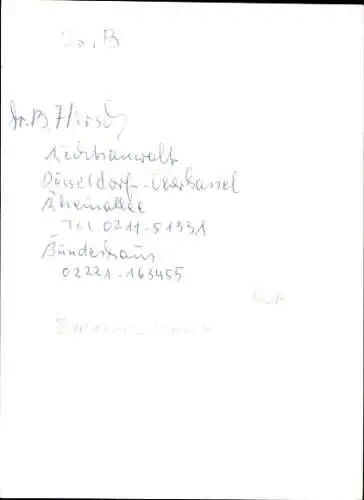 Dr. B
Dr. B. Hirsch
Rechtsanwalt
Düsseldorf-Oberkassel
Rheinallee
Tel 0211-51331
Bundeshaus
02221-163455